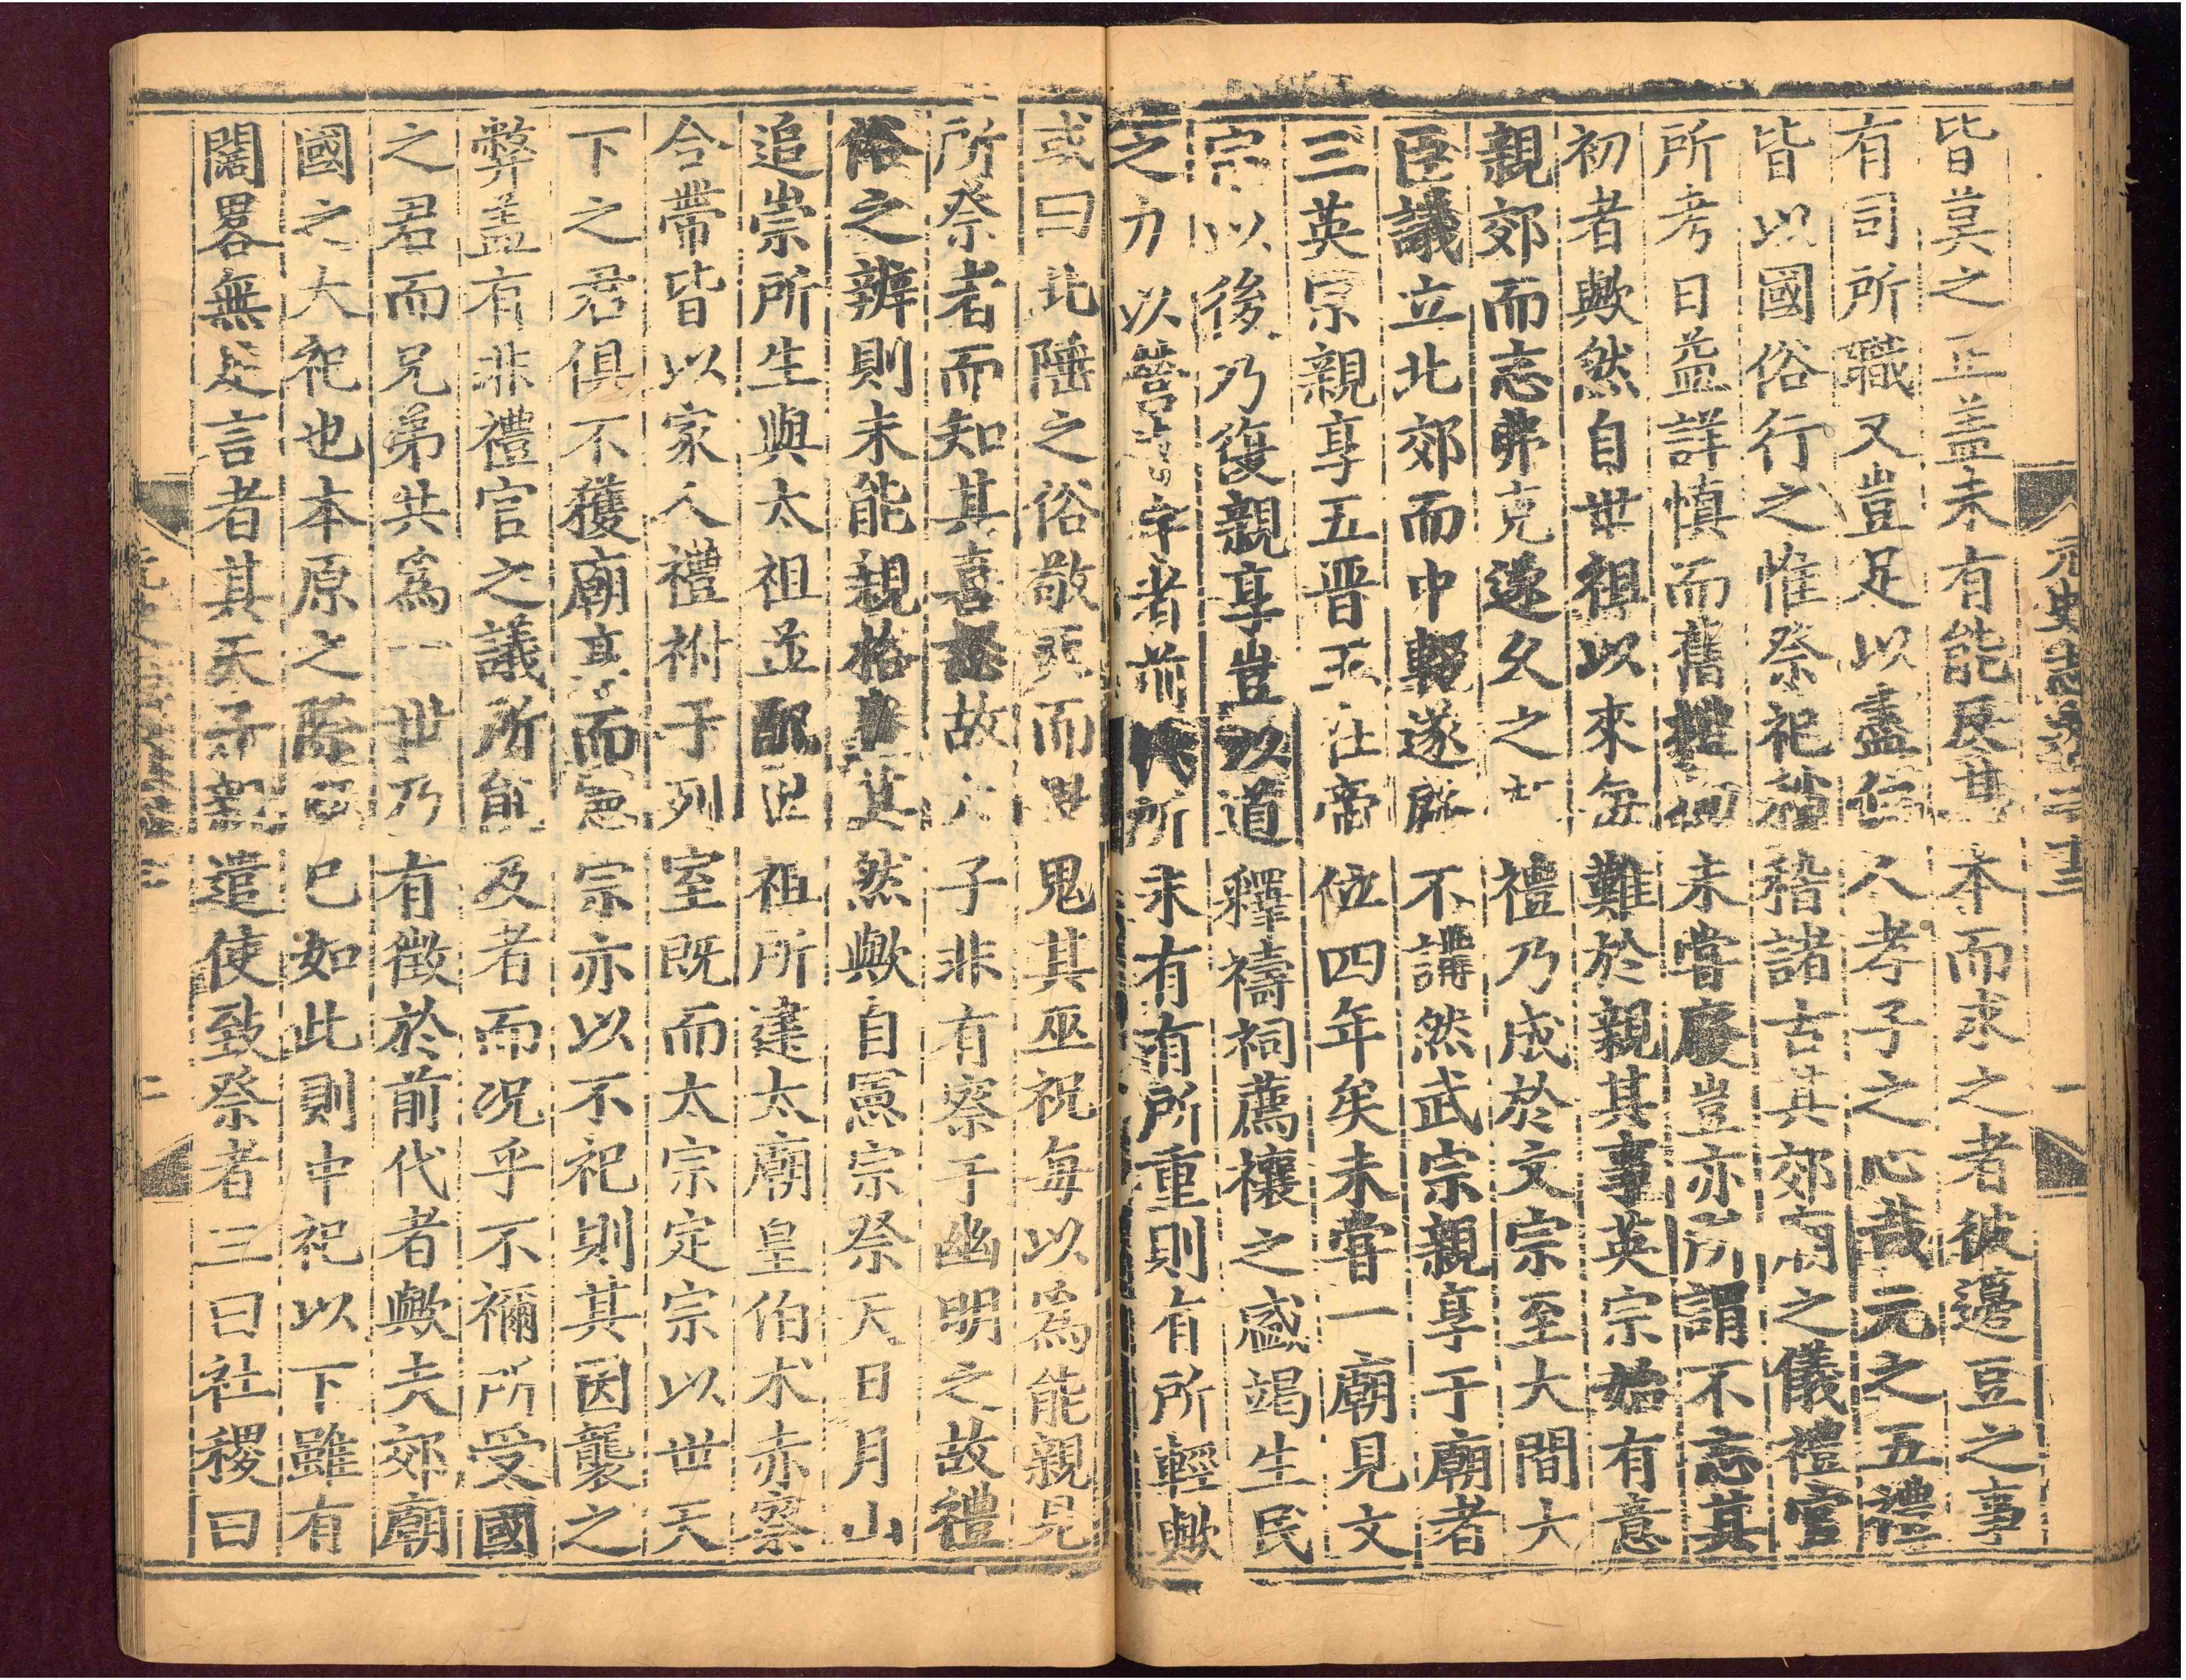 元史志卷二十三
一
皆莫之正盖未有能反其本而求之者彼籩豆之事
有司所職又豈足以盡仁人孝子之心哉元之五禮
皆以國俗行之惟祭祀稍稽諸古其郊廟之儀禮官
所考日益詳慎而舊禮初未嘗廢豈亦所謂不忘其
初者歟然自世祖以來每難於親其事英宗始有意
親郊而志弗克遂久之其禮乃成於文宗至大間大
臣議立北郊而中輟遂廢不講然武宗親享于廟者
三英宗親享五晋王在帝位四年矣未嘗一廟見文
宗以後乃復親享豈以道釋禱祠薦禳之盛竭生民
之力以營寺宇者前代所未有有所重則有所輕歟
或曰北陲之俗敬天而畏鬼其巫祝每以為能親見
所祭者而知其喜怒故天子非有察于幽明之故禮
俗之辨則未能親格豈其然歟自憲宗祭天日月山
追崇所生與太祖並配世祖所建太廟皇伯朮赤察
合帶皆以家人禮祔于列室既而太宗定宗以世天
下之君俱不獲廟享而憲宗亦以不祀則其因襲之
弊盖有非禮官之議所能及者而况乎不禰所受國
之君而兄弟共爲一世乃有徵於前代者歟夫郊廟
國之大祀也本原之際既已如此則中祀以下雖有
闊畧無足言者其天子親遣使致祭者三曰社稷曰
二